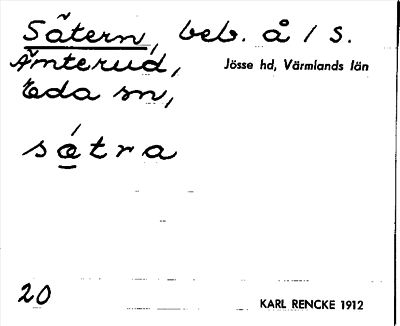 Sätern, beb. å 1 S.
Ämterud,
Jösse hd, Värmlands län
Eda sn,
sǿ̠tra
20
KARL RENCKE 1912